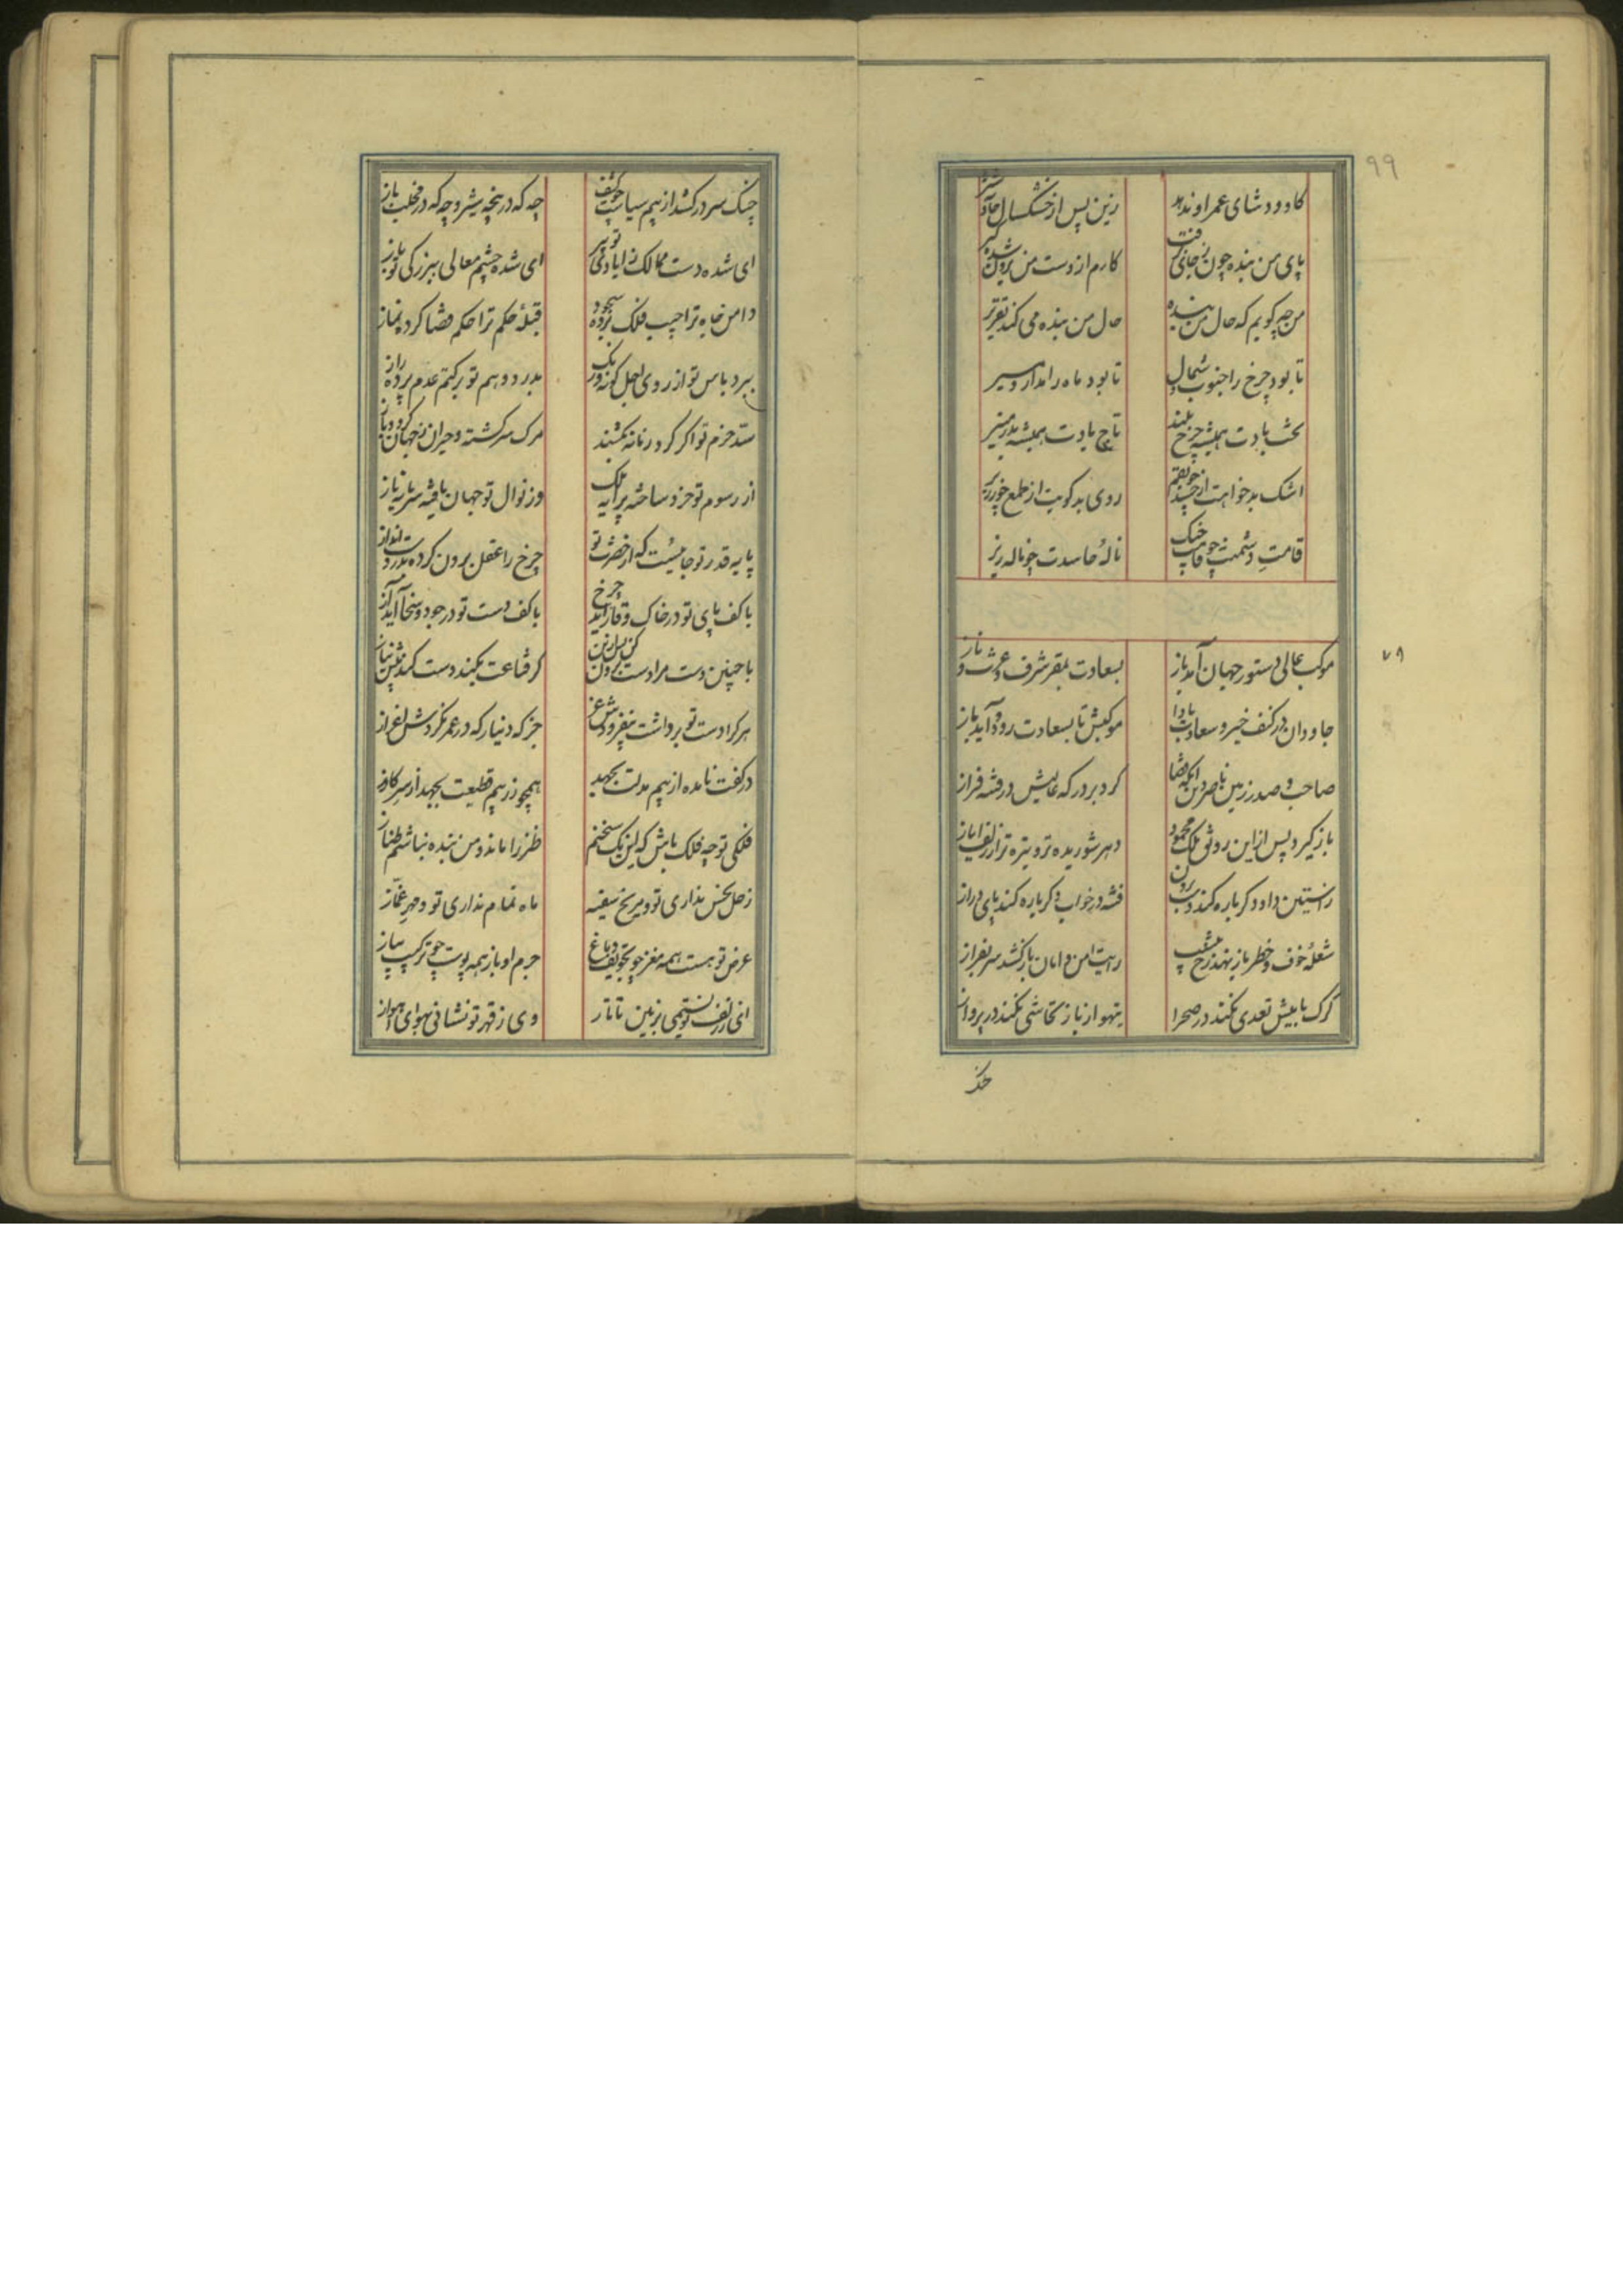 ۹۹
کاو و دشای عمر او ندهد
زین پس از خشکسال حادثه شیر
پای من بنده چون ز جای برفت
کارم از دست من برون شده گیر
من چه گویم که حال من بنده
حال من بنده می کند تقریر
تا بود چرخ را جنوب و شمال
تا بود ماه را مدار و مسیر
تخت بادت همیشه چرخ بلند
تاج بادت همیشه بدر منیر
اشک بدخواهت از حسد چو بقم
روی بدگویت از طمع چو زریر
قامت دشمنت چو قامت چنگ
ناله حاسدت چو ناله زیر
۷۹
موکب عالی دستور جهان آمد باز
بسعادت بمقر شرف و عزت و ناز
جاودان در کنف خیر و سعادت بادا
موکبش تا بسعادت رود و آید باز
صاحب و صدر زمین ناصر دین آنکه قضا
کرد بر درگه عالیش در فتنه فراز
بازگیرد پس ازین رونق ملک محمود
دهر شوریده تر و تیره تر از زلف ایاز
راستین داود گر باره کند دست برون
فتنه در خواب دگر باره کند پای دراز
شعله خوف و خطر باز نهد رخ بنشیب
رایت امن و امان باز کشد سر بفراز
گرگ با میش تعدی نکند در صحرا
تیهو از باز تحاشی نکند در پرواز
چنگ
چنگ سر درکشد از بیم سیاست چو کشف
چه که در پنجه شیر و چه که در مخلب باز
ای شده دست ممالک ز ایادی تو پر
ای شده چشم معالی ببزرگی تو باز
دامن جاه ترا جیب فلک برده سجود
قبله حکم ترا حکم قضا کرده نماز
ببرد باس تو از روی اجل گونه و رنگ
بدرد وهم تو بر کتم عدم پرده راز
سد حزم تو اگر گرد زمانه بکشند
مرگ سرگشته و حیران ز جهان گردد باز
از رسوم تو خرد ساخته پیرایه ملک
وز نوال تو جهان یافته سرمایه ناز
پایه قدر تو جائیست که از حضرت تو
چرخ را عقل برون کرده بدر دست انداز
با کف پای تو در خاک وقار آید چرخ
با کف دست تو در جود و سخا آید آز
با چنین دست مرا دست برون کن پس ازین
گر قناعت بکند دست کند پیش نیاز
هر کرا دست تو برداشت بیفزودش عز
جز که دینار که در عمر نکردش اعزاز
در کفت نامده از بیم مذلت بجهد
همچو زر بیم قطیعت بجهد از سر گاز
فلکی تو چه فلک باش که این یک سخنم
طنز را ماند و من بنده نباشم طناز
زحل نحس نداری تو و مریخ سفیه
ماه نمام نداری تو و مهر غماز
عرض تو هست همه مغز چو تجویف دماغ
جرم او باز همه پوست چو ترکیب پیاز
ای ز لطف تو نسیمی بزمین تاتار
وی ز قهر تو نشانی بهوای اهواز